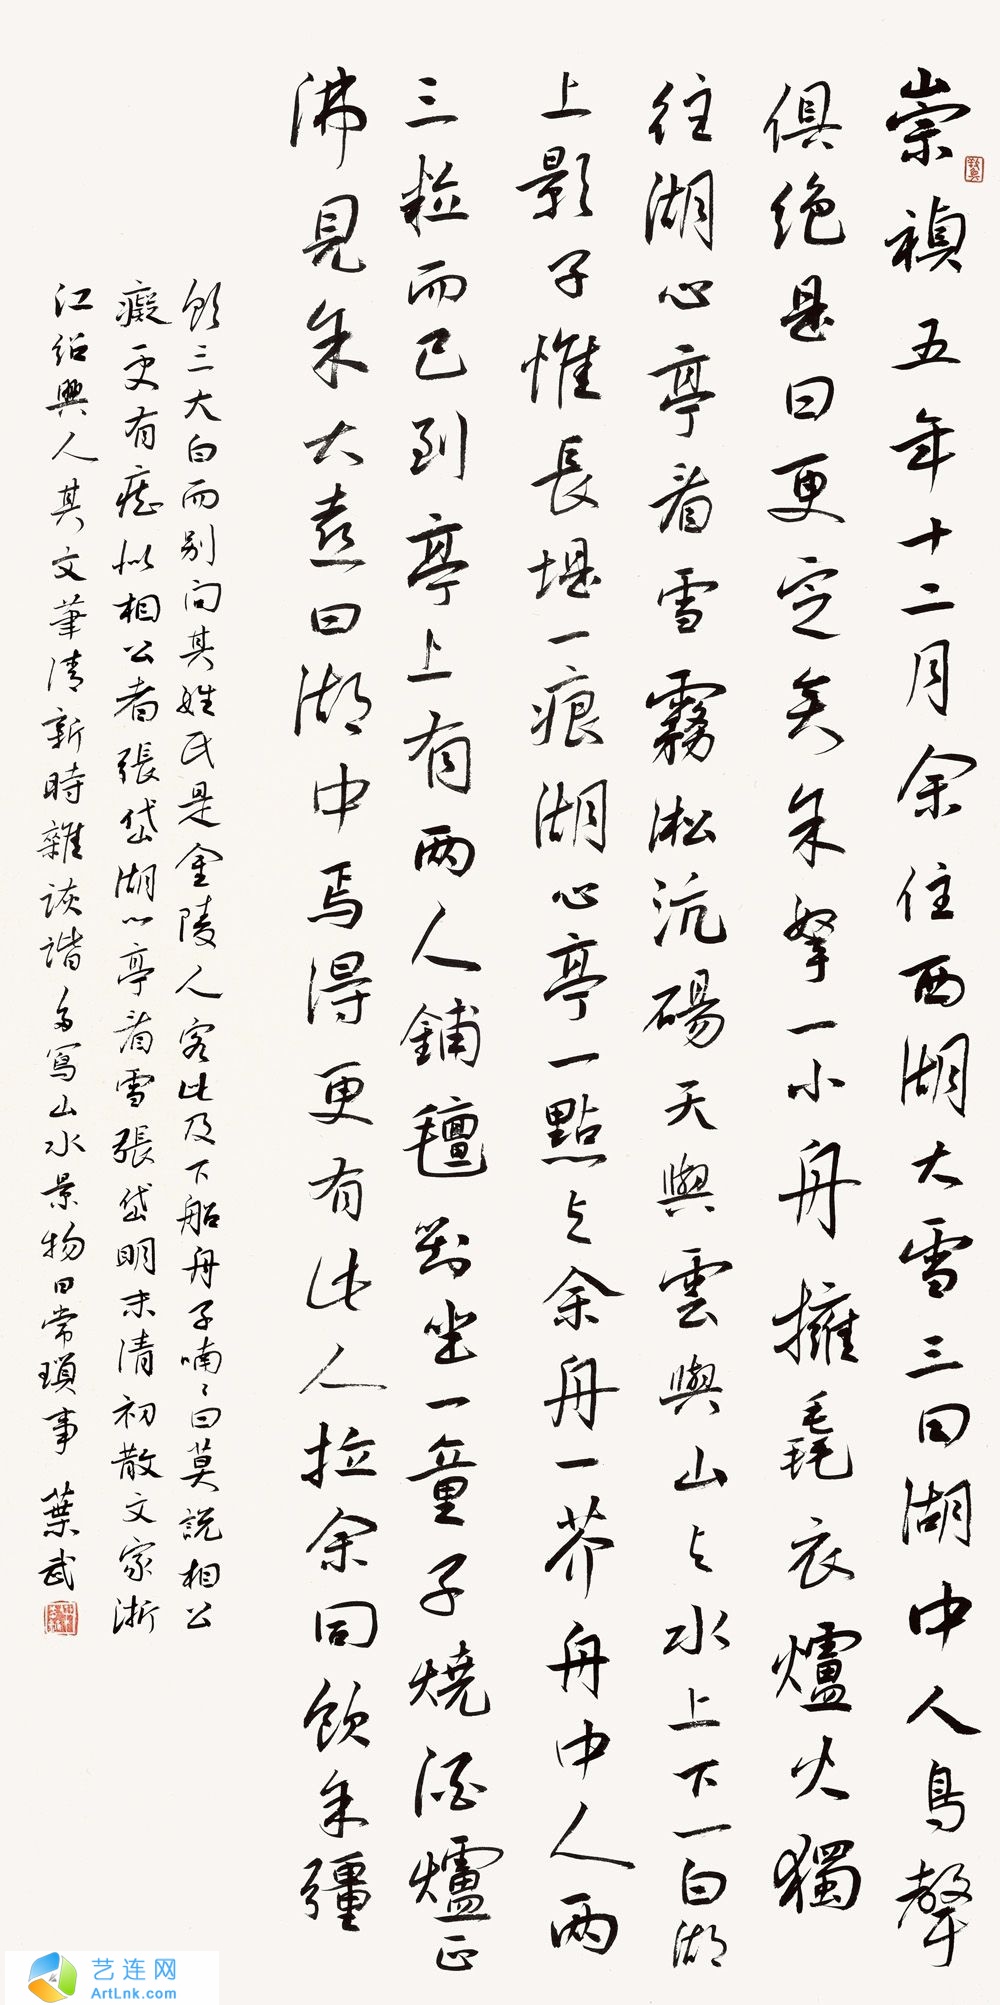 崇禎五年十二月余住西湖大雪三日湖中人鳥聲
俱絶是日更定矣余拏一小舟擁毳衣爐火獨
往湖心亭看雪霧淞沆碭天與雲與山与水上下一白湖
上影子惟長堤一痕湖心亭一點与余舟一芥舟中人兩
三粒而已到亭上有兩人鋪氈對坐一童子燒酒爐正
沸見余大喜曰湖中焉得更有此人拉余同飲余彊
飲三大白而别問其姓氏是金陵人客此及下船舟子喃〻曰莫説相公
癡更有痴似相公者張岱湖心亭看雪張岱明末清初散文家浙
江紹興人其文筆清新時雜詼諧多寫山水景物日常瑣事 葉武
艺连网
ArtLnk.com